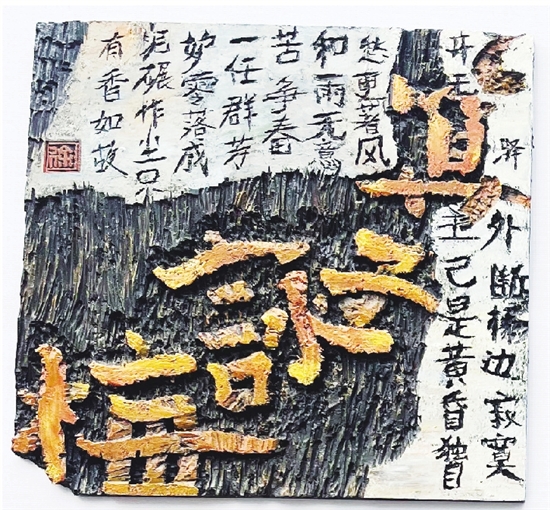 驿外断桥边寂寞
开无主已是黄昏独自
愁更著风
和雨无意
苦争春
一任群芳
妒零落成
泥碾作尘只
有香如故